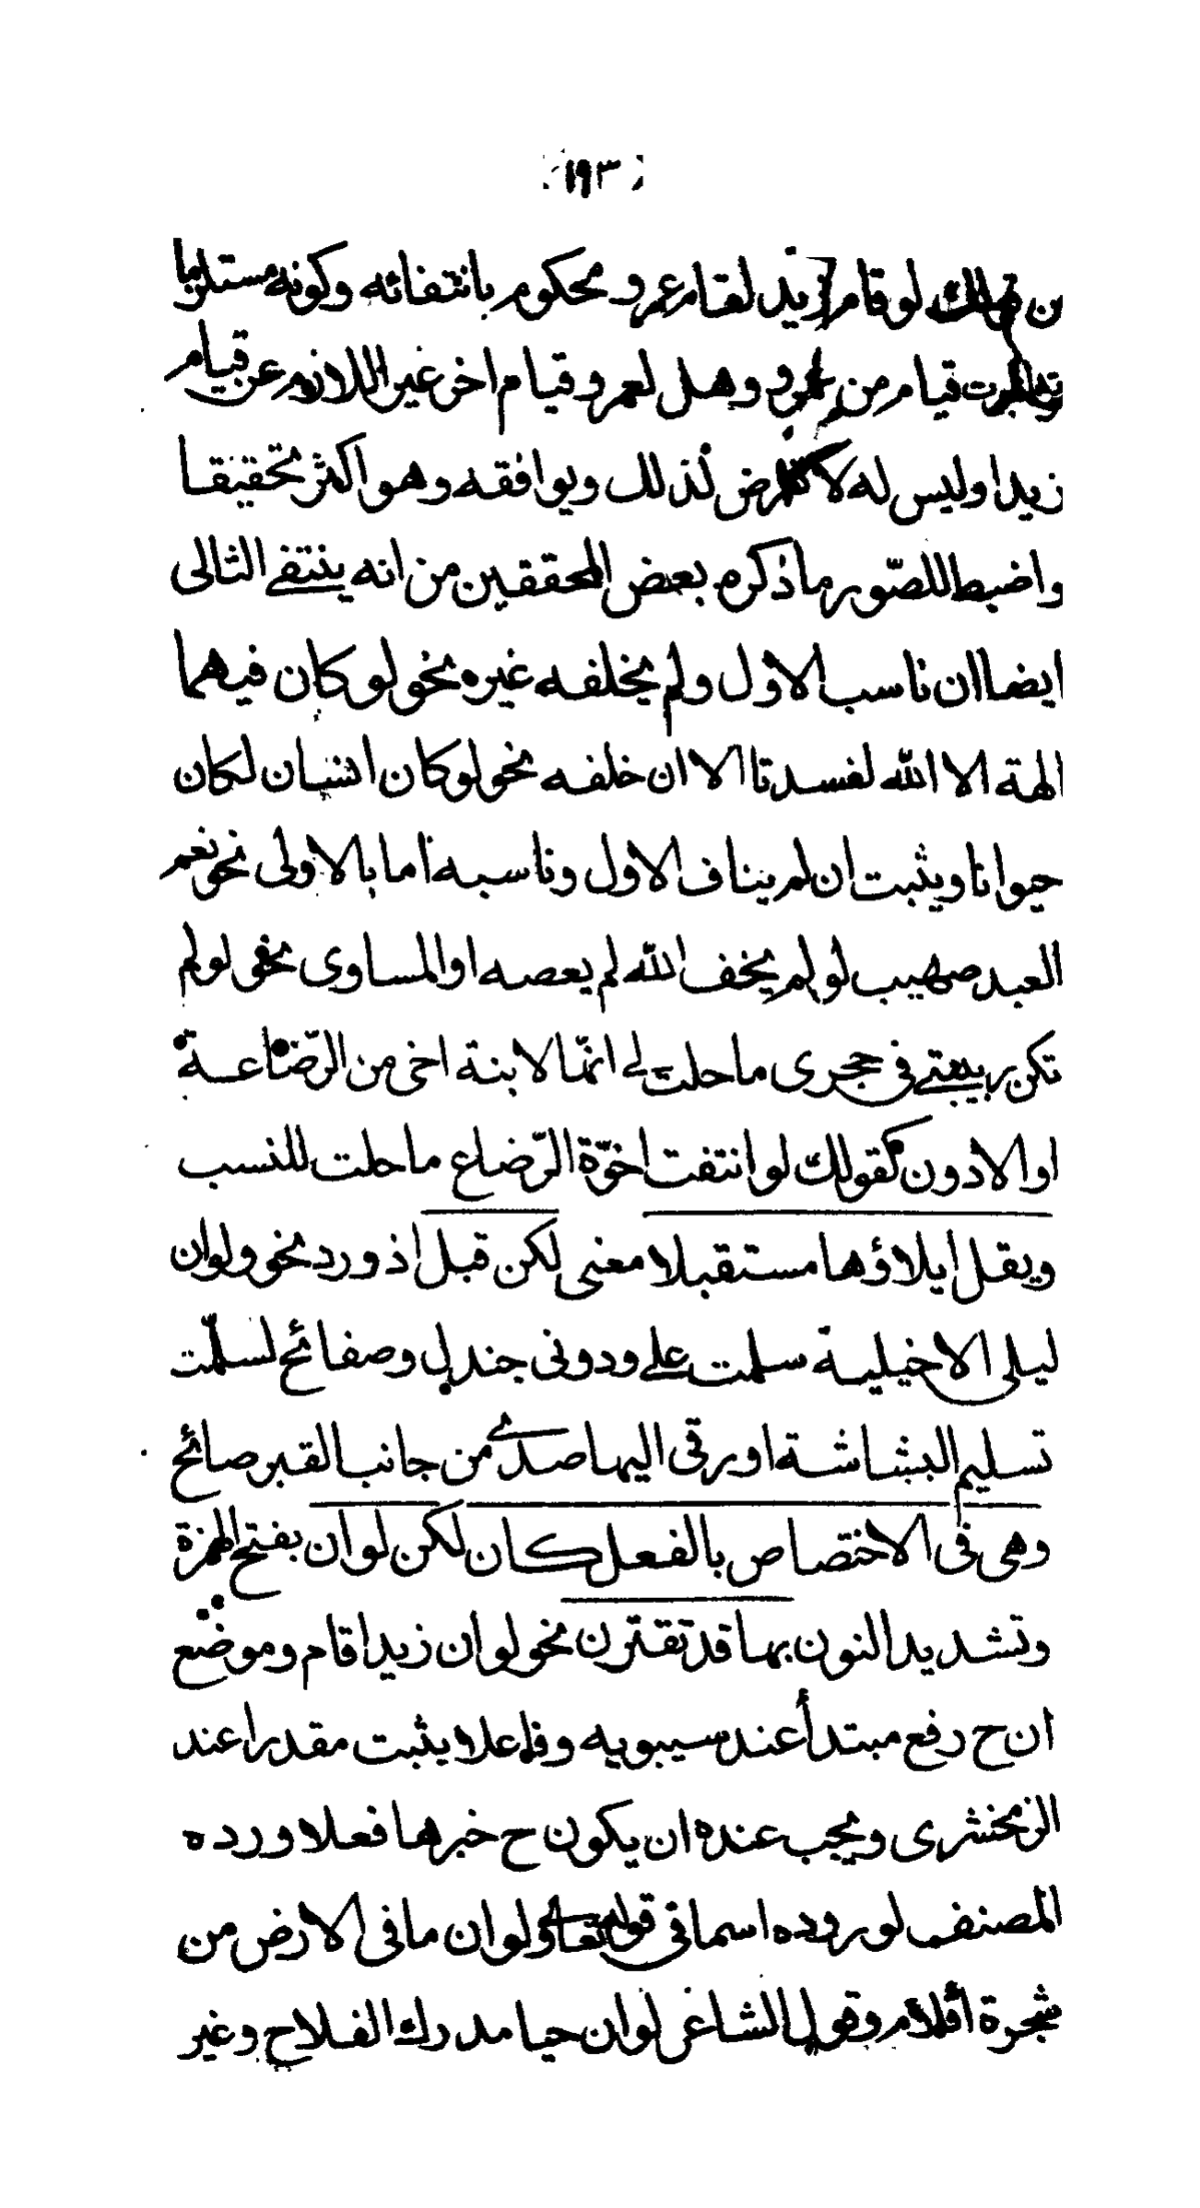 ١٩٣
من قولك لو قام زيد لقام عمرو محكوم بانتفائه وكونه مستلزما
ثبوته لثبوت قيام من عمرو وهل لعمرو قيام اخر غير اللازم عن قيام
زيد او ليس له لا تعرض لذلك ويوافقه وهو اكثر تحقيقا
واضبط للصّور ما ذكره بعض المحققين من انه ينتفى التالى
ايضا ان ناسب الاول ولم يخلفه غيره نحو لو كان فيهما
الهة الا الله لفسدتا الا ان خلفه نحو لو كان انسان لكان
حيوانا ويثبت ان لم يناف الاول وناسبه اما بالاولى نحو نعم
العبد صهيب لو لم يخف الله لم يعصه او المساوى نحو لو لم
تكن ربيبتى فى حجرى ما حلت لى انّما لابنة اخى من الرّضاعة
او الادون كقولك لو انتفت اخوّة الرّضاع ما حلت للنسب
ويقل ايلاؤها مستقبلا معنى لكن قبل اذ ورد نحو ولو ان
ليلى الاخيلية سلمت على ودونى جندل وصفائح لسلّمت
تسليم البشاشة او رقى اليها صدى من جانب القبر صائح
وهى فى الاختصاص بالفعل كان لكن لو ان بفتح الهمزة
وتشديد النون بها قد تقترن نحو لو ان زيدا قام وموضع
ان ح رفع مبتدأ عند سيبويه وفاعلا يثبت مقدرا عند
الزمخشرى ويجب عنده ان يكون ح خبرها فعلا ورده
المصنف لوروده اسما فى قوله تعالى ولو ان ما فى الارض من
شجرة أقلام وقول الشاعر لو ان حيا مدرك الفلاح وغير